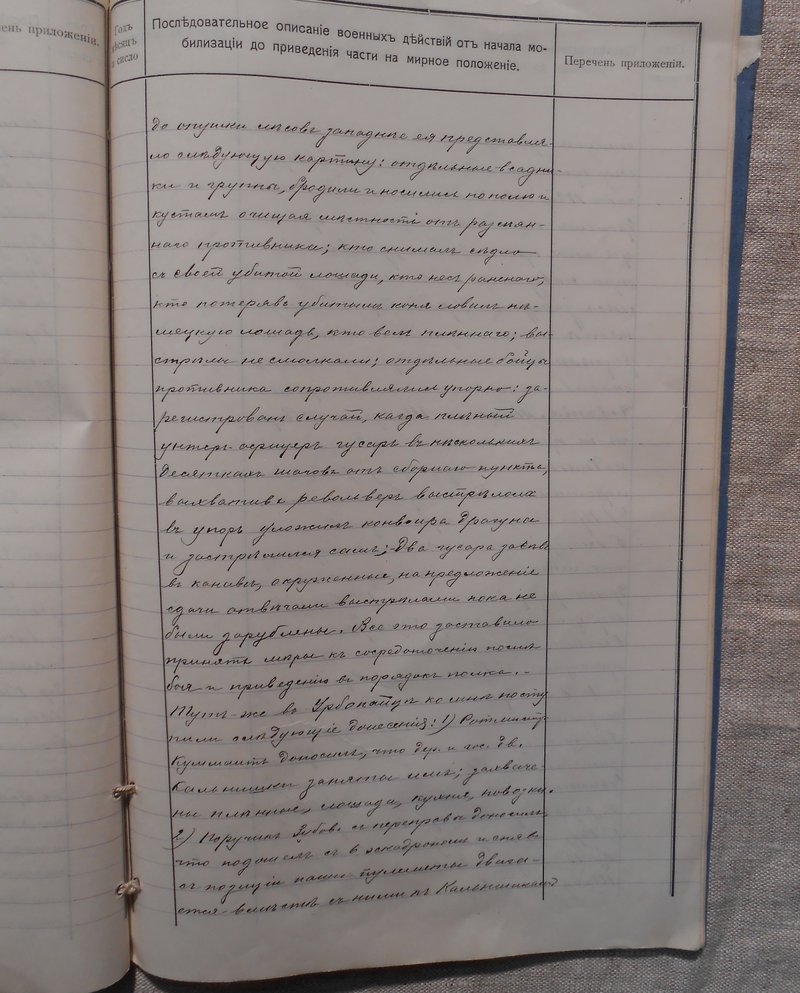 чень приложенія.
Годъ
мѣсяцъ
и число
Послѣдовательное описаніе военныхъ дѣйствій отъ начала мо-
билизаціи до приведенія части на мирное положеніе.
Перечень приложенія.
до опушки лѣсовъ западнѣе ея представля-
ло слѣдующую картину: отдѣльные всадни-
ки и группы, бродили и носились по полю и
кустамъ очищая мѣстность отъ разсѣян-
наго противника; кто снималъ сѣдло
съ своей убитой лошади, кто несъ раненаго,
кто потерявъ убитымъ коня ловилъ нѣ-
мецкую лошадь, кто велъ плѣннаго; вы-
стрѣлы не смолкали; отдѣльные бойцы
противника сопротивлялись упорно: за-
регистрованъ случай, когда плѣный
унтеръ-офицеръ гусаръ въ нѣсколькихъ
десяткахъ шаговъ отъ сборнаго пункта,
выхвативъ револьверъ выстрѣломъ
въ упоръ уложилъ конвоира драгуна
и застрѣлился самъ; два гусара засѣвъ
въ канавѣ, окруженные, на предложеніе
сдачи отвѣчали выстрѣлами пока не
были зарублены. Все это заставило
принять мѣры къ сосредоточенію послѣ
боя и приведенію въ порядокъ полка. -
Тутъ-же въ Урбопайцѣ ко мнѣ посту
пили слѣдующіе донесенія: 1) Ротмистръ
доносилъ, что дер. и гос. дв.
Кальнишки заняты имъ; захваче-
ны плѣнные, лошади, кухня, повозки.
2) Поручикъ Зубовъ съ переправы доносилъ
что подошелъ съ в эскадрономъ и снявъ
съ позиціи наши пулеметы двига-
ется вмѣстѣ съ ними къ